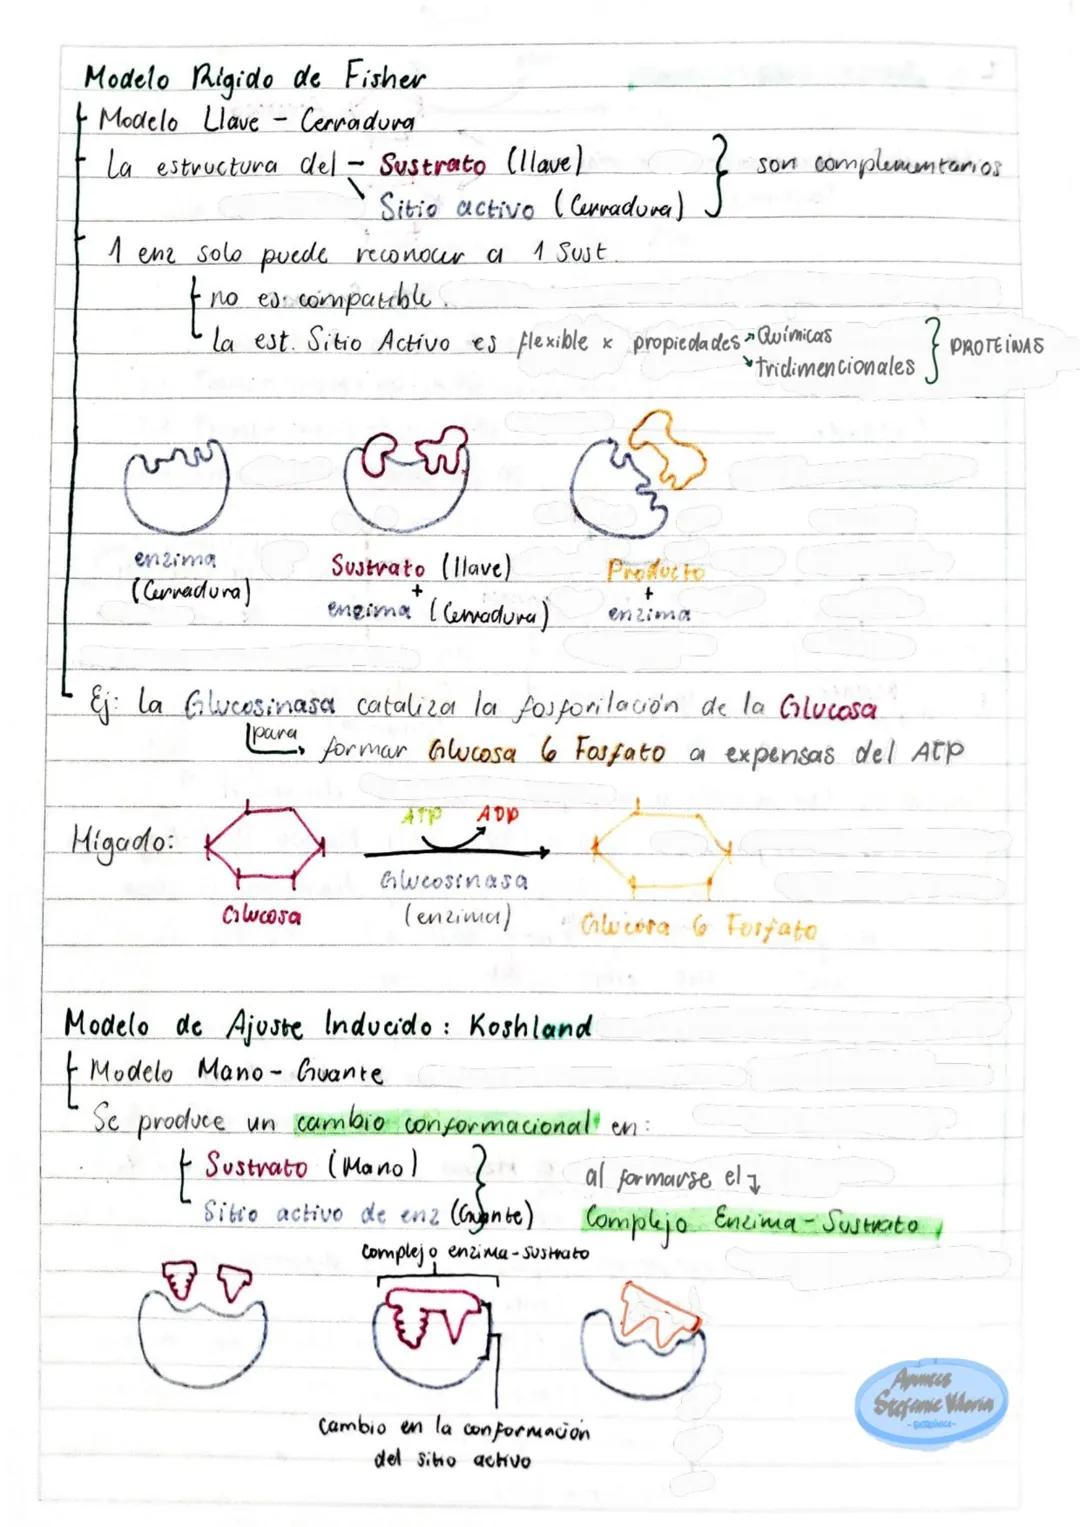 Modelo Rígido de Fisher
Modelo Llave - Cerradura
La estructura del - Sustrato (llave)
Sitio activo (Cerradura)
son complementarios
1 enz solo puede reconocer a 1 Sust.
no es compatible.
la est. Sitio Activo es flexible x propiedades Químicas
tridimencionales
PROTEÍNAS
enzima
(Cerradura)
Sustrato (llave)
+
enzima (Cerradura)
Producto
+
enzima
Ej: la Glucosinasa cataliza la fosforilación de la Glucosa
para
formar Glucosa 6 Fosfato a expensas del ATP
Hígado:
ATP ADP
Glucosinasa
(enzima)
Glucosa
Glucosa 6 Fosfato
Modelo de Ajuste Inducido: Koshland
Modelo Mano - Guante
Se produce un cambio conformacional en:
Sustrato (Mano)
Sitio activo de enz (Guante)
al formarse el
Complejo Enzima - Sustrato
Complejo enzima - sustrato
Cambio en la conformación
del sitio activo
Apuntes
Stefanie